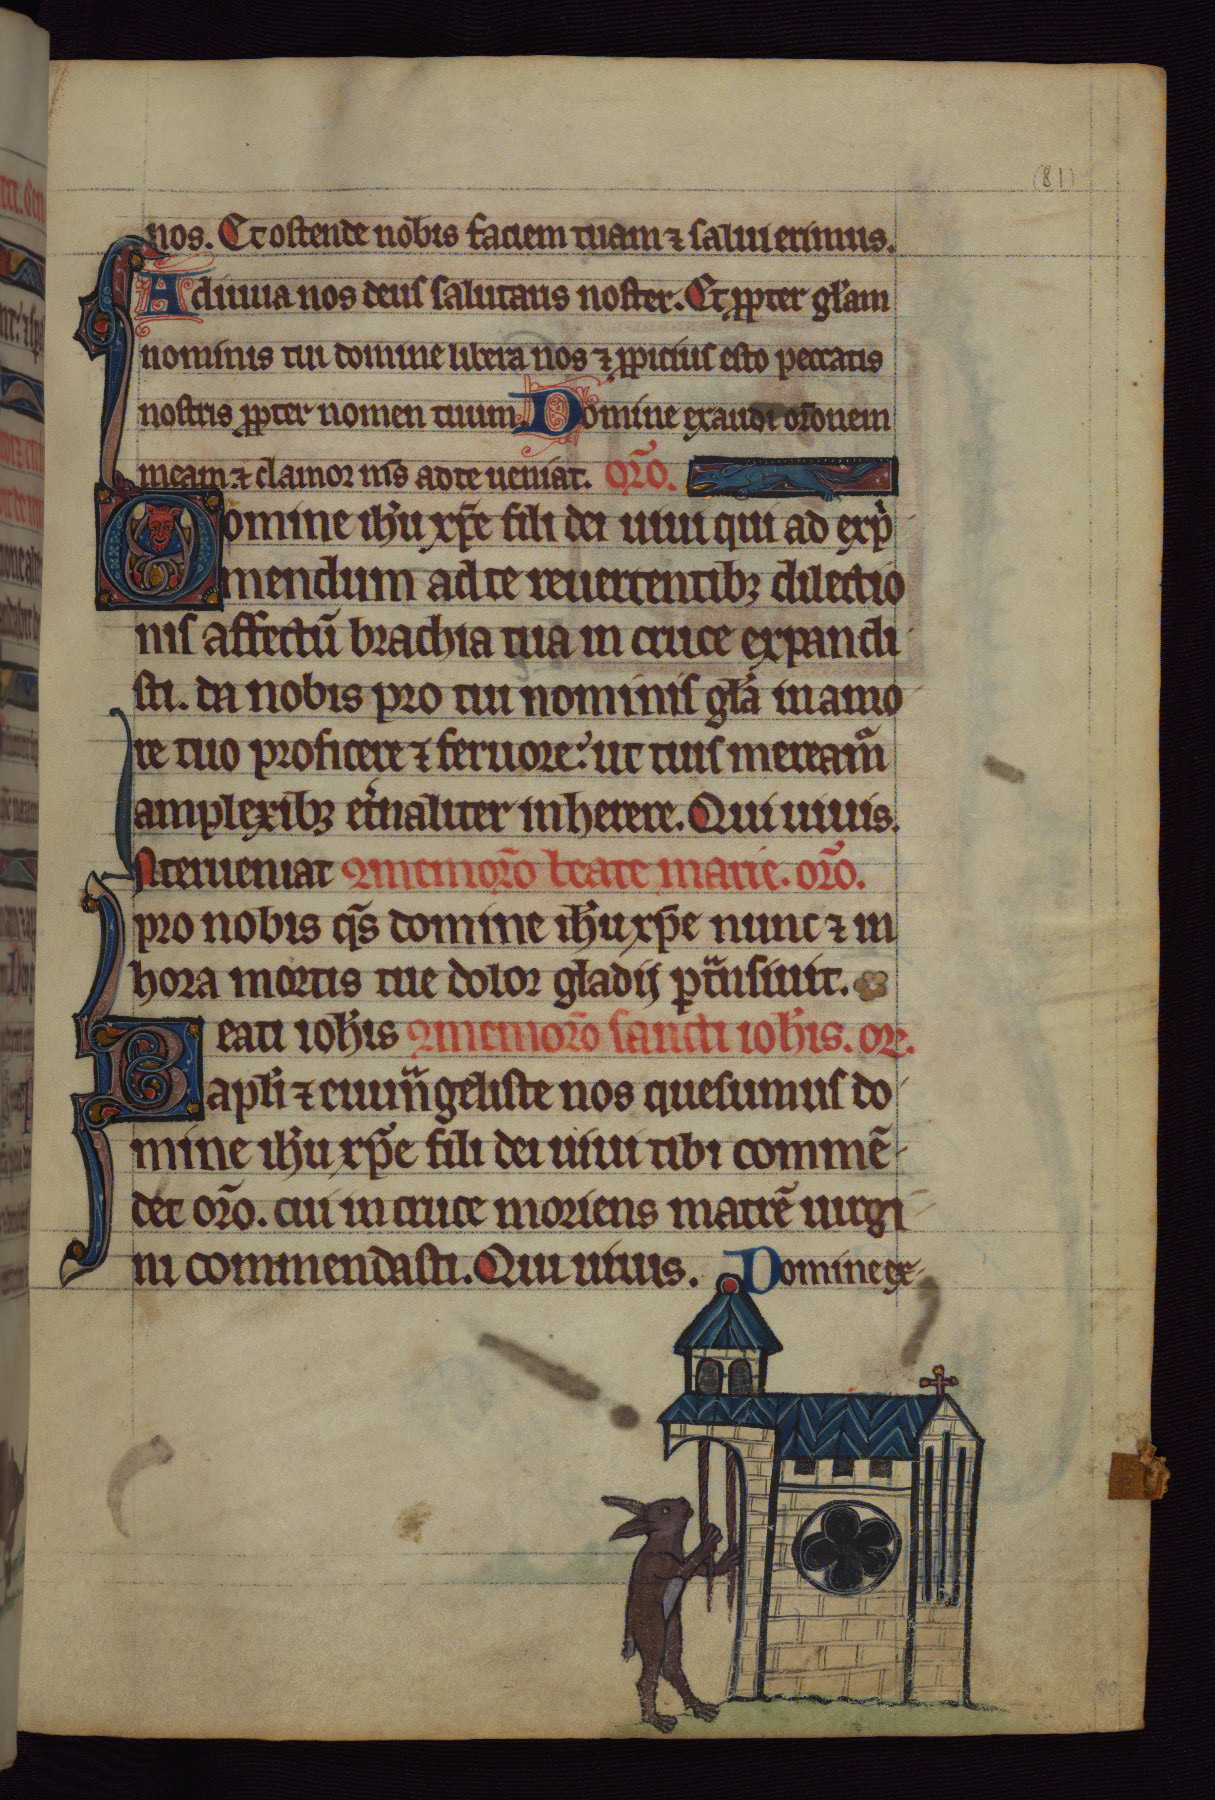 (81)
nos. Et ostende nobis faciem tuam ⁊ salui erimus.
Adiuua nos deus salutaris noster. Et ꝓpter gl̄am
nominis tui domine libera nos ⁊ ꝓpicius esto peccatis
nostris ꝓpter nomen tuum. Domine exaudi or̄onem
meam ⁊ clamor ms̄ ad te ueniat. or̄o.
Domine ih̄u xp̄e fili dei uiui qui ad exp̍
mendum ad te reuertentibꝫ dilectio
nis affectū brachia tua in cruce expandi
sti. da nobis pro tui nominis gl̄a in amo
re tuo proficere ⁊ feruore: ut tuis meream̄
amplexibꝫ et̍naliter inherere. Qui uiuis.
Interueniat In memor̄o beate marie. or̄o.
pro nobis qs̄ domine ih̄u xp̄e nunc ⁊ in
hora mortis tue dolor gladij ꝑtͣnsiuit.
Beati ioh̄is In memor̄o sancti ioh̄is. or.
apl̄i ⁊ euuͣngeliste nos quesumus do
mine ih̄u xp̄e fili dei uiui tibi commē
det or̄o. cui in cruce moriens matrē uirgi
ni commendasti. Qui uiuis. Domine ex